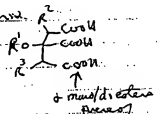 R² COOH
R¹O COOH
R³ COOH
& mono/diesters
thereof